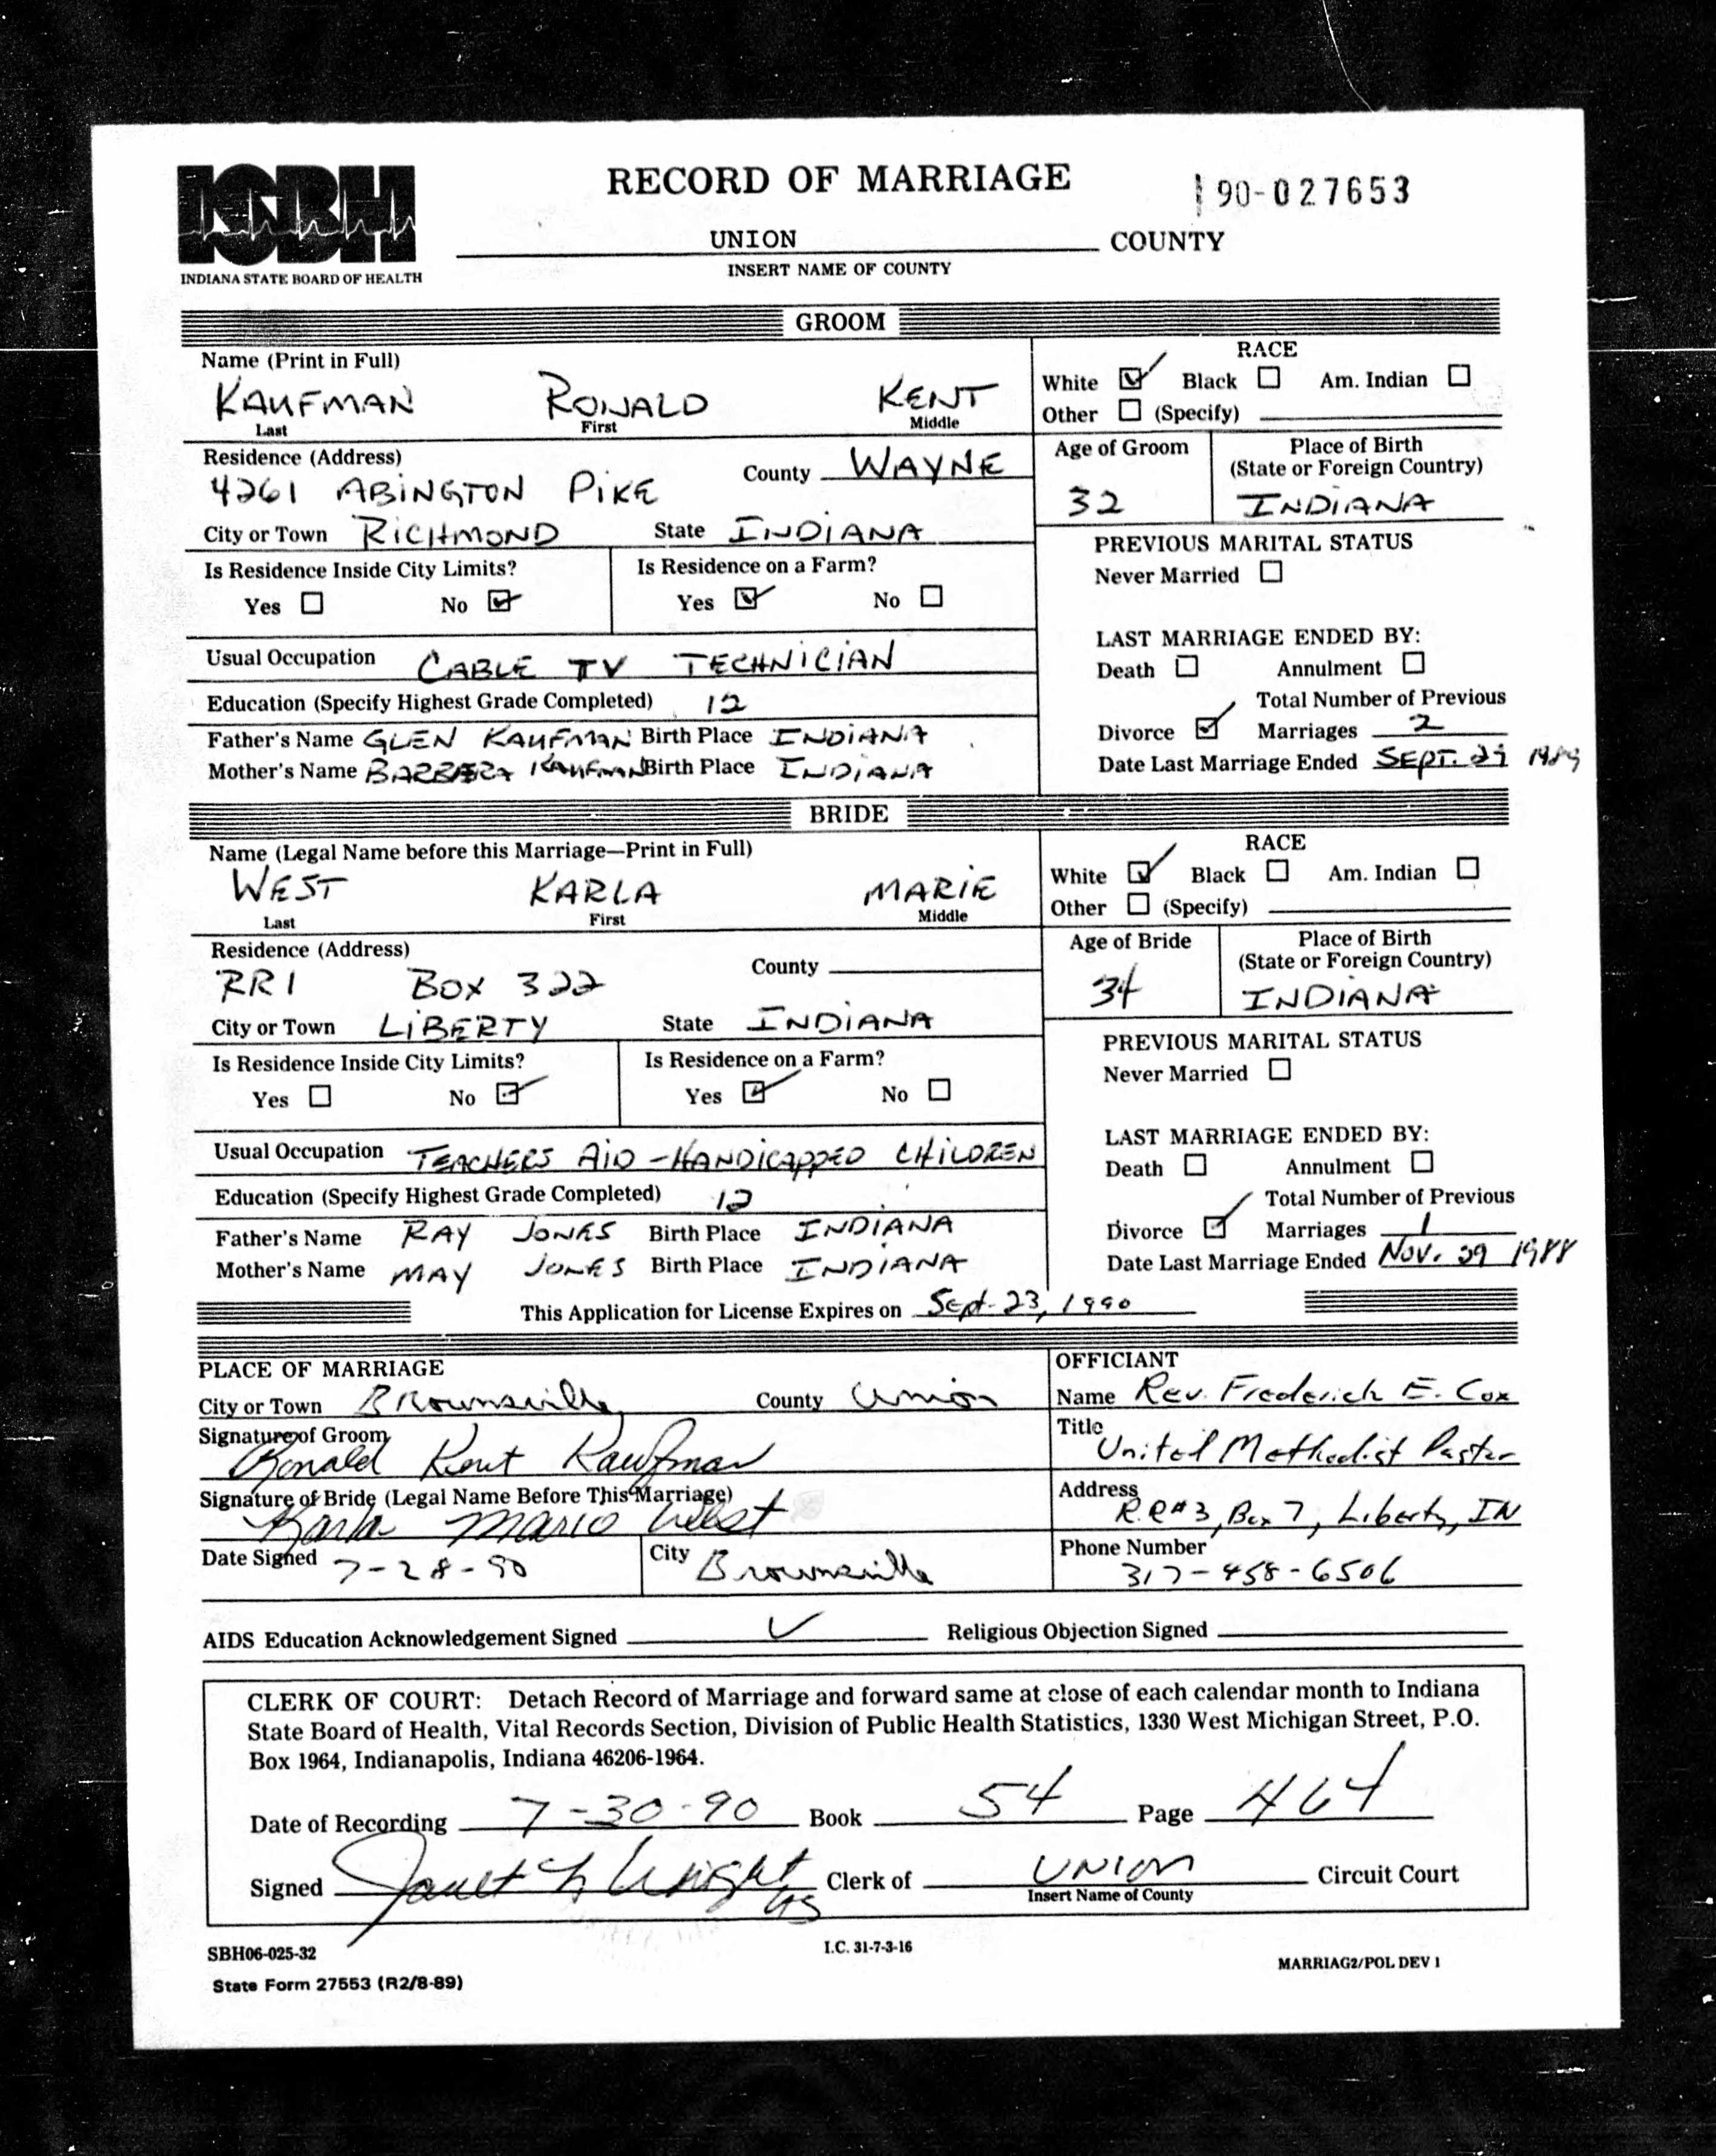 RECORD OF MARRIAGE
90-027653
ISBH
INDIANA STATE BOARD OF HEALTH
UNION COUNTY
INSERT NAME OF COUNTY
GROOM
Name (Print in Full)
KAUFMAN RONALD KENT
Last First Middle
RACE
White ☑ Black ☐ Am. Indian ☐
Other ☐ (Specify)
Residence (Address)
4261 ABINGTON PIKE County WAYNE
City or Town RICHMOND State INDIANA
Age of Groom
32
Place of Birth
(State or Foreign Country)
INDIANA
Is Residence Inside City Limits?
Yes ☐ No ☑
Is Residence on a Farm?
Yes ☑ No ☐
PREVIOUS MARITAL STATUS
Never Married ☐
Usual Occupation CABLE TV TECHNICIAN
Education (Specify Highest Grade Completed) 12
Father's Name GLEN KAUFMAN Birth Place INDIANA
Mother's Name BARBARA KAUFMAN Birth Place INDIANA
LAST MARRIAGE ENDED BY:
Death ☐ Annulment ☐
Total Number of Previous
Divorce ☑ Marriages 2
Date Last Marriage Ended SEPT. 1989
BRIDE
Name (Legal Name before this Marriage—Print in Full)
WEST KARLA MARIE
Last First Middle
RACE
White ☑ Black ☐ Am. Indian ☐
Other ☐ (Specify)
Residence (Address)
RR1 BOX 322 County
City or Town LIBERTY State INDIANA
Age of Bride
34
Place of Birth
(State or Foreign Country)
INDIANA
Is Residence Inside City Limits?
Yes ☐ No ☑
Is Residence on a Farm?
Yes ☑ No ☐
PREVIOUS MARITAL STATUS
Never Married ☐
Usual Occupation TEACHERS AID - HANDICAPPED CHILDREN
Education (Specify Highest Grade Completed) 12
Father's Name RAY JONES Birth Place INDIANA
Mother's Name MAY JONES Birth Place INDIANA
LAST MARRIAGE ENDED BY:
Death ☐ Annulment ☐
Total Number of Previous
Divorce ☑ Marriages 1
Date Last Marriage Ended NOV. 29 1988
This Application for License Expires on Sept-23, 1990
PLACE OF MARRIAGE
City or Town Brownsville County Union
Signature of Groom
Ronald Kent Kaufman
Signature of Bride (Legal Name Before This Marriage)
Karla Marie West
Date Signed 7-28-90 City Brownsville
OFFICIANT
Name Rev. Frederick E. Cox
Title United Methodist Pastor
Address
R.R#3, Box 7, Liberty, IN
Phone Number
317-458-6506
AIDS Education Acknowledgement Signed ✓ Religious Objection Signed
CLERK OF COURT: Detach Record of Marriage and forward same at close of each calendar month to Indiana
State Board of Health, Vital Records Section, Division of Public Health Statistics, 1330 West Michigan Street, P.O.
Box 1964, Indianapolis, Indiana 46206-1964.
Date of Recording 7-30-90 Book 54 Page 464
Signed Janet L Wright Clerk of UNION Circuit Court
Insert Name of County
SBH06-025-32
I.C. 31-7-3-16
MARRIAG2/POL DEV 1
State Form 27553 (R2/8-89)